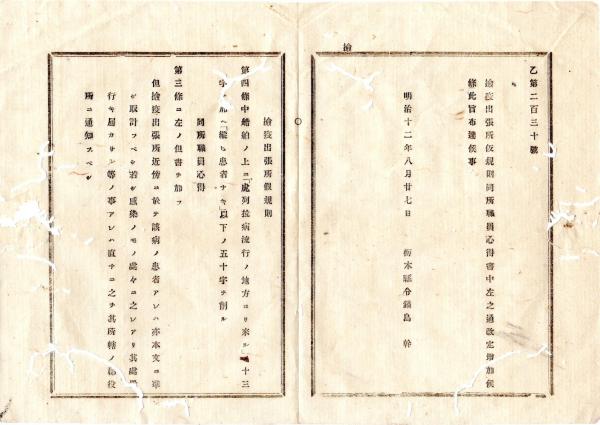 乙第二百三十號
檢疫出張所仮規則同所職員心得書中左之通改定増加候
條此旨布達候事
明治十二年八月廿七日
栃木縣令鍋島 幹
檢
檢疫出張所假規則
第四條中船舶ノ上ニ「虎列拉病流行ノ地方ヨリ來ル」ノ十三
字ヲ加ヘ「縦ヒ患者ナキ」以下ノ五十字ヲ削ル
同所職員心得
第三條ニ左ノ但書ヲ加フ
但檢疫出張所近傍ニ於テ該病ノ患者アレハ亦本文ニ準
シ取計フベシ若シ感染ノモノ處々ニ之レアリ其處
行キ届カサル等ノ事アレハ直チニ之ヲ其所轄ノ檢役
所ニ通知スベシ